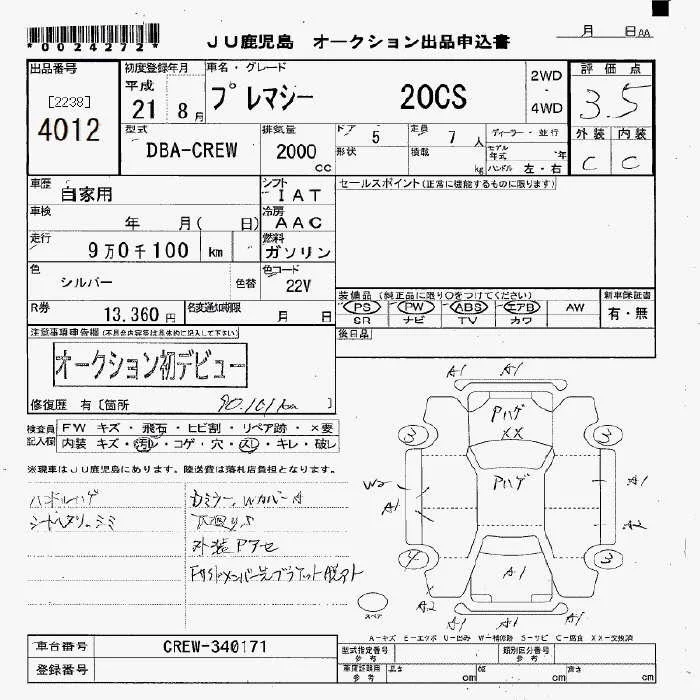 *0024272*
JU鹿児島 オークション出品申込書
月 日 AA
出品番号 初度登録年月 車名・グレード 2WD 評価点
[2238] 平成 プレマシー 20CS 4WD 3.5
4012 21 8月
外装 内装
C C
型式 排気量 ドア 5 定員 7 人 ディーラー・並行
DBA-CREW 2000 cc 形状 積載 kg モデル年式 年
ハンドル 左・右
車歴 自家用 シフト IAT セールスポイント(正常に機能するものに限ります)
車検 年 月( 日) 冷房 AAC
走行 9万0千100 km 燃料 ガソリン
色 シルバー 色替 色コード 22V
装備品(純正品に限り○をつけてください) 新車保証書
R券 13,360円 名変通知期限 月 日
PS PW ABS エアB AW 有・無
SR ナビ TV カワ
注意事項申告欄(不具合内容等は具体的に記入して下さい) 後日品
オークション初デビュー
修復歴 有[箇所 90,101km ]
検査員記入欄 FW キズ・飛石・ヒビ割・リペア跡・×要
内装 キズ・汚レ・コゲ・穴・スレ・キレ・破レ
※現車はJU鹿児島にあります。陸送費は落札店負担となります。
ハンドルハゲ
シートヘタリ、シミ
外装 P アセ
A1 A1
Pハゲ
XX
3 3
Pハゲ
W2 A1 A1 A2
4 3
A1
A2 A1 A1
スペア
A-キズ E-エクボ U-凹み W-補修跡 S-サビ C-腐食 XX-交換済
車台番号 CREW-340171 型式指定番号 参考 類別区分番号 参考
登録番号 車庫証明用 参考 長さ cm 幅 cm 高さ cm